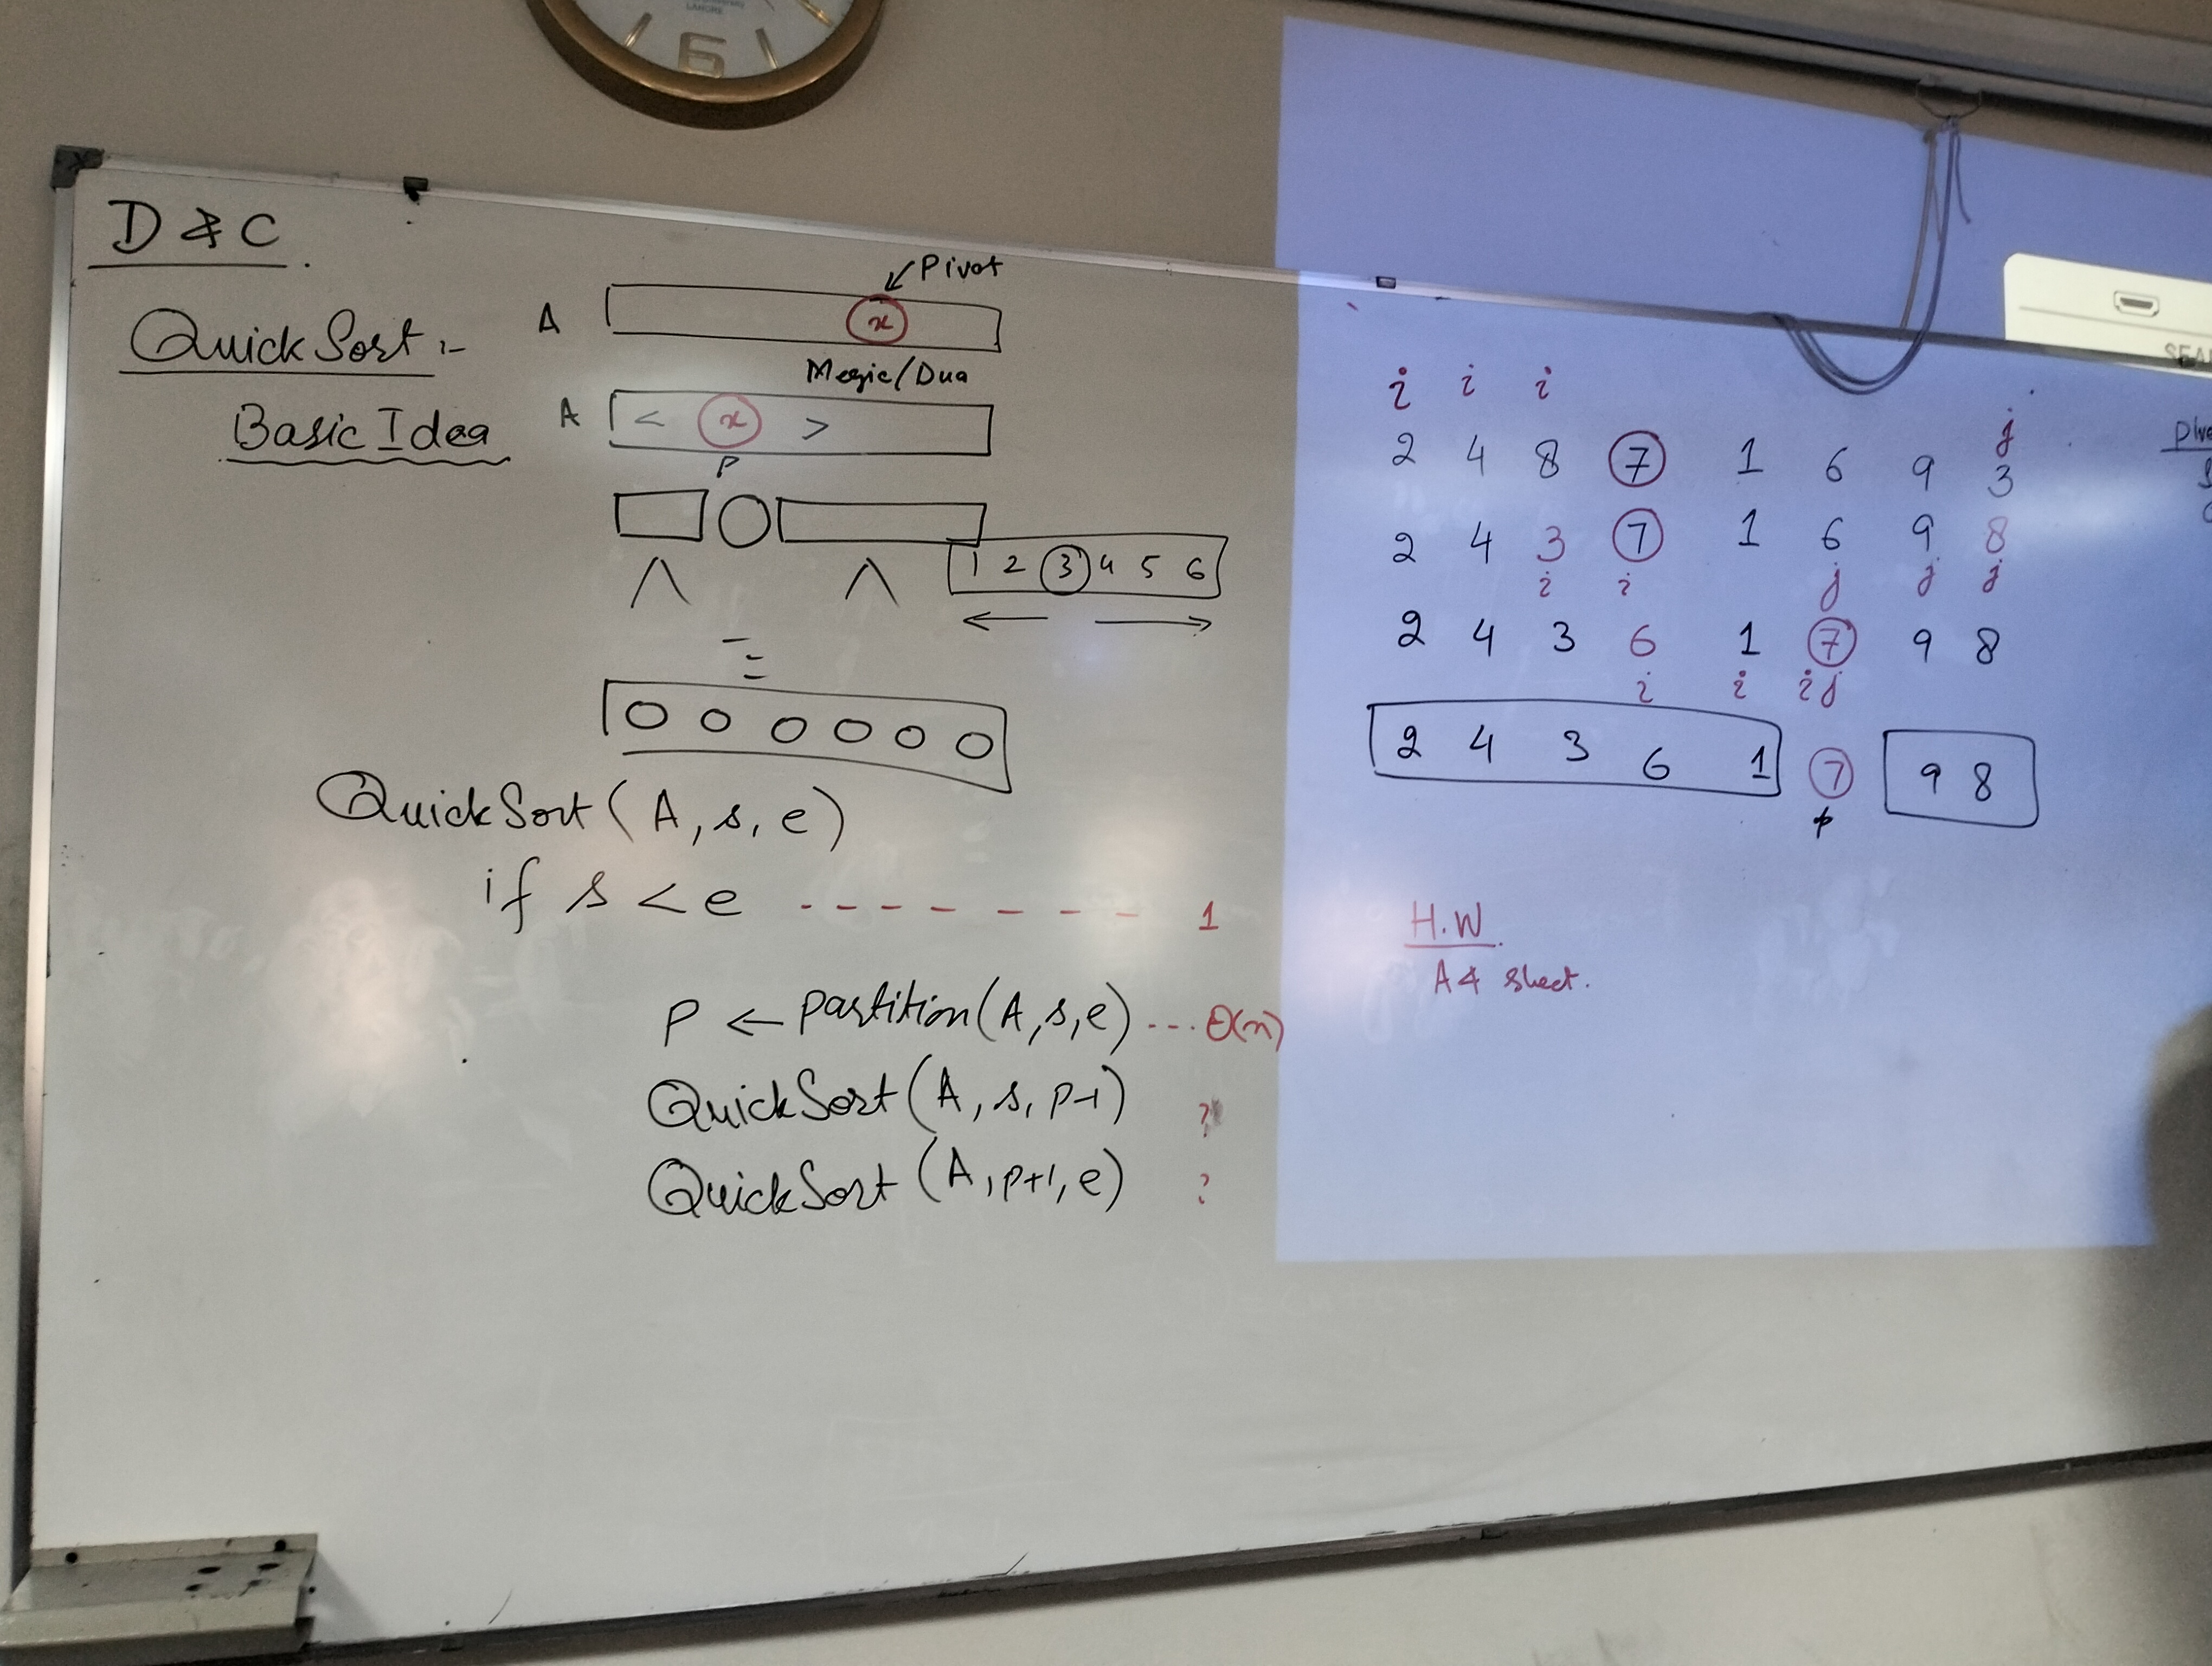 LAHORE
6
D & C
QuickSort :-
Basic Idea
Pivot
A x
Megic/Dua
A < x >
P
1 2 3 4 5 6
QuickSort (A, s, e)
if s < e - - - - - - - - 1
P ← Partition (A, s, e) --- Θ(n)
QuickSort (A, s, p-1) ?
QuickSort (A, p+1, e) ?
i i i j
2 4 8 7 1 6 9 3
2 4 3 7 1 6 9 8
i i j j j
2 4 3 6 1 7 9 8
i i i j
2 4 3 6 1 7 9 8
p
H.W.
A4 sheet.